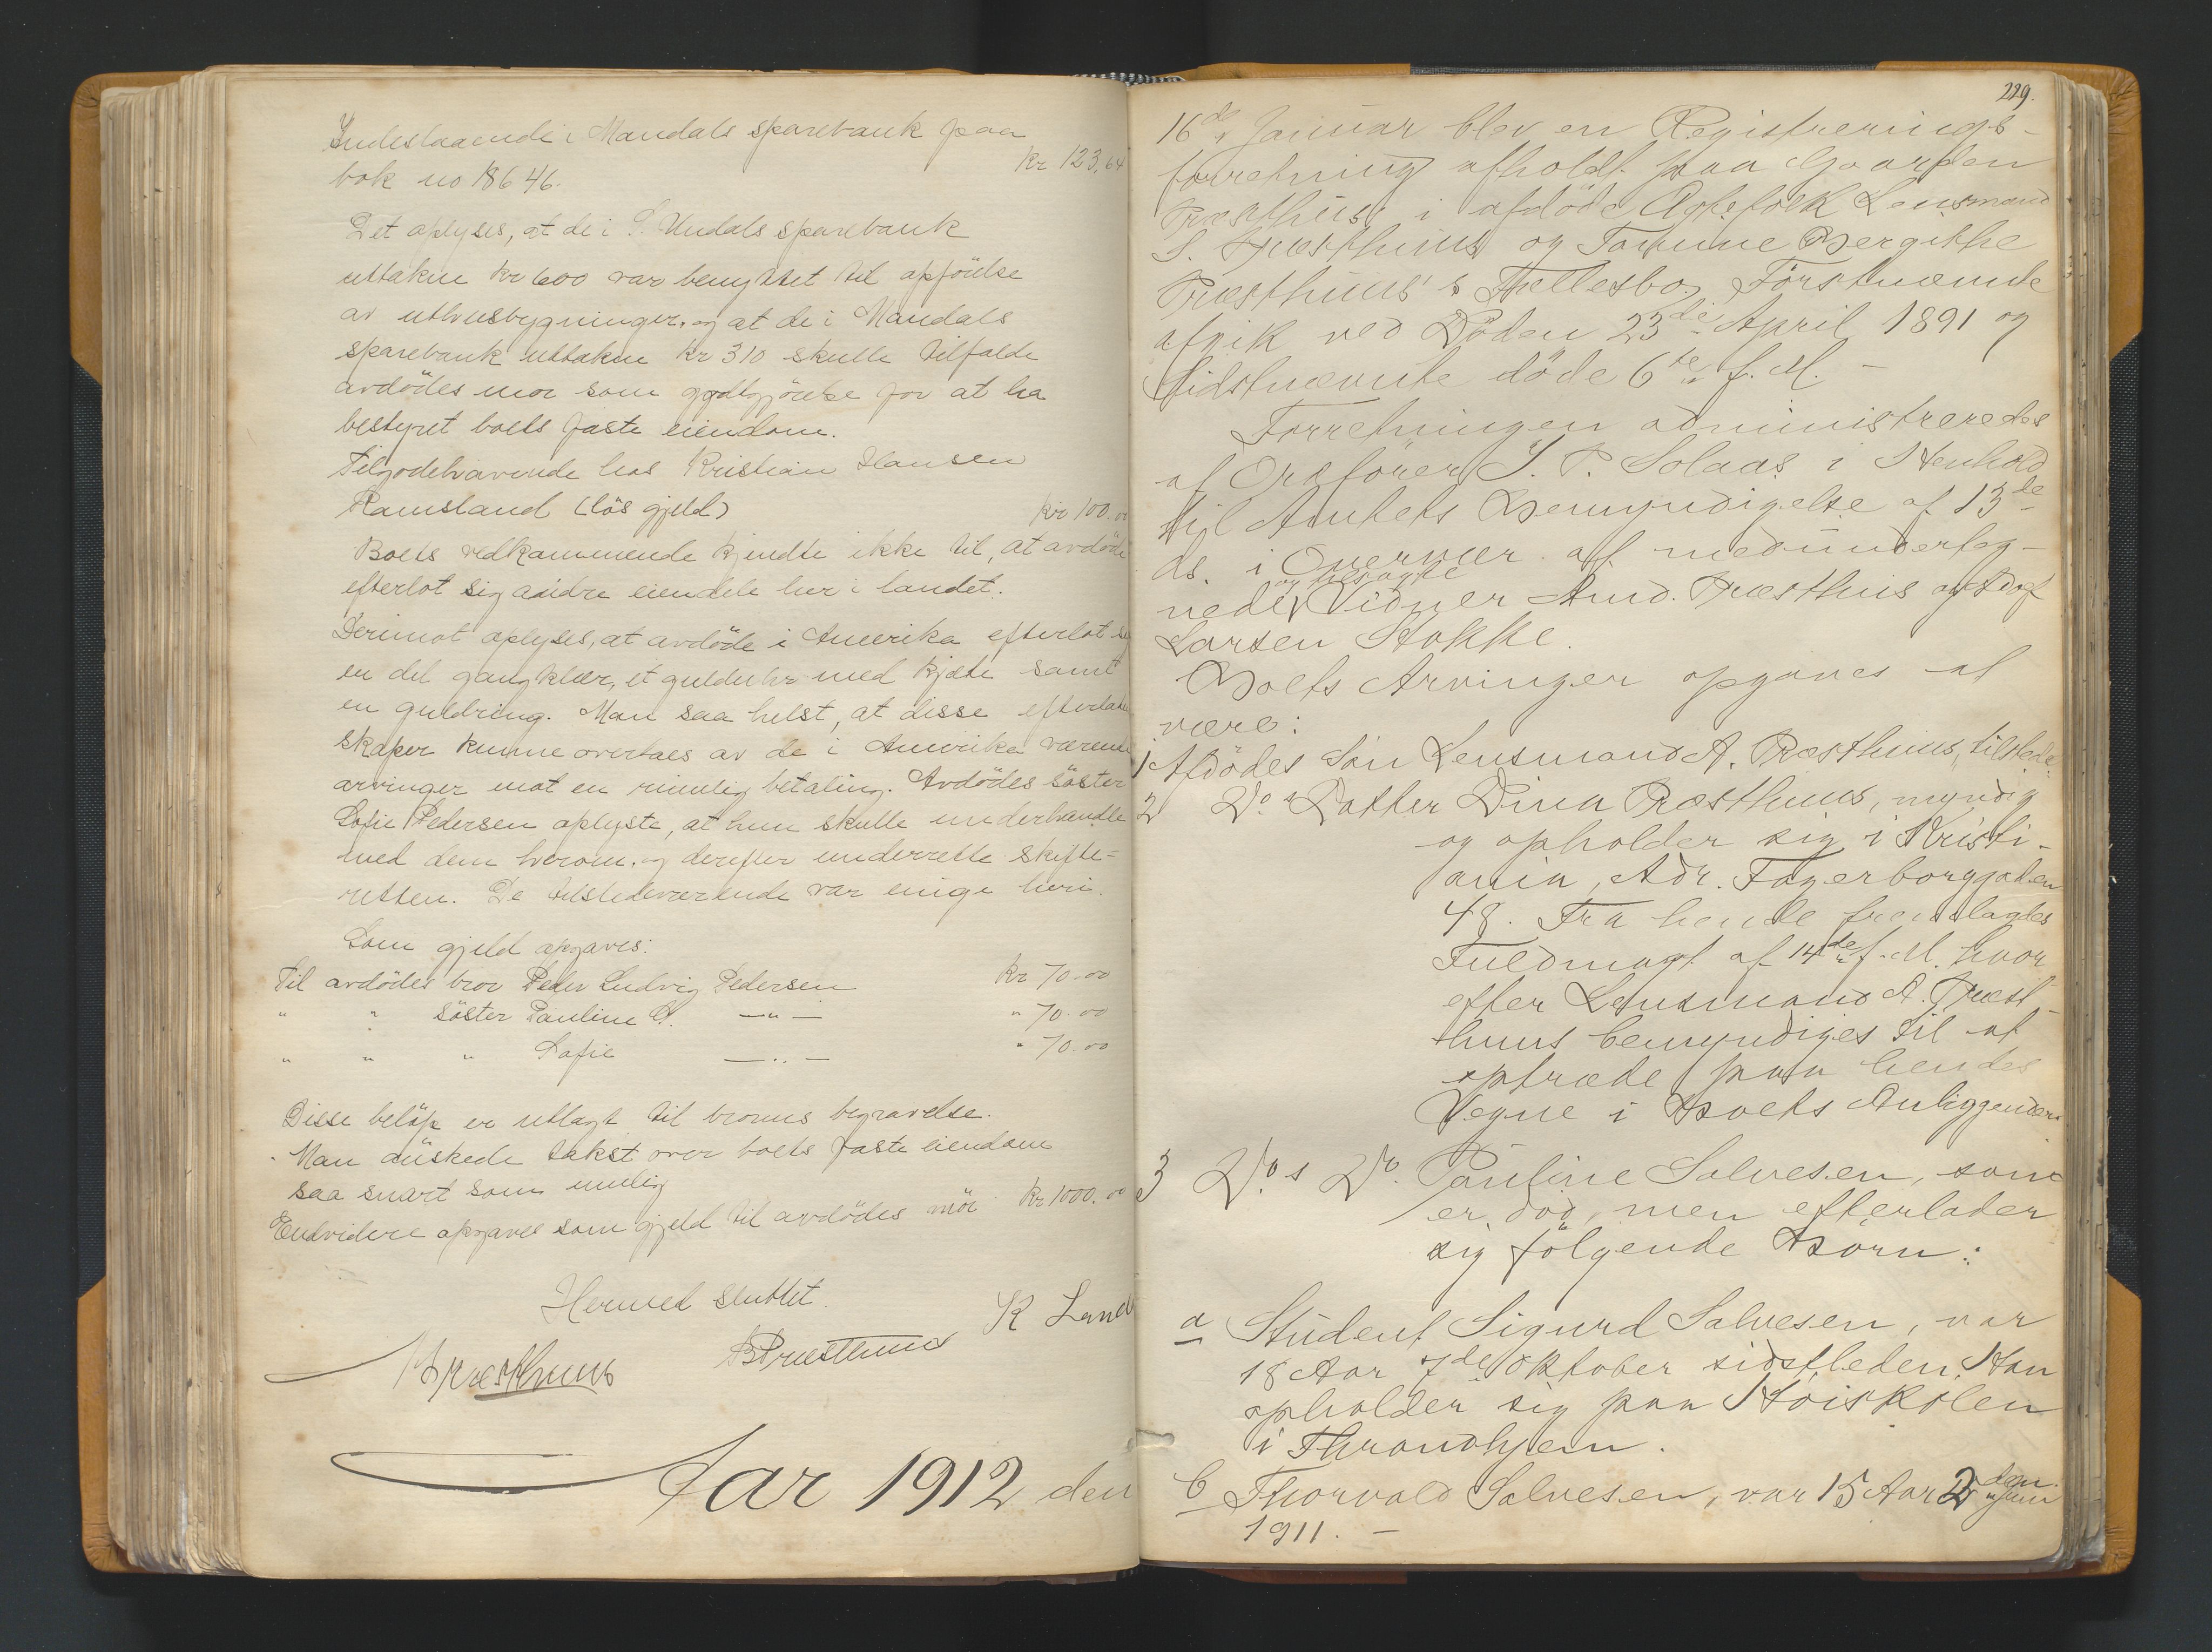 Indestaaende i Mandals sparebank paa
bok no 18646. kr 123,64
Det oplyses, at de i S. Undals sparebank
uttakne kr 600 var benyttet til opförelse
av uthusbygninger, og at de i Mandals
sparebank uttakne kr 310 skulle tilfalde
avdödes mor som godtgjörelse for at ha
bestyret boets faste eiendom.
Tilgodehavende hos Kristian Hansen
Ramsland (lös gjeld) kr 100.00
Boets vedkommende kjendte ikke til, at avdöde
efterlot sig andre eiendele her i landet.
Derimot oplyses, at avdöde i Amerika efterlot sig
en del gangklær, et gulduhr med kjæde samt
en guldring. Man saa helst, at disse efterladen
skaper kunne overtaes av de i Amerika værende
arvinger mot en rimelig betaling. Avdödes söster
Sofie Pedersen oplyste, at hun skulle underhandle
med dem herom, og derefter underrette skifte=
retten. De tilstedeværende var enige heri.
Som gjeld opgaves:
Til avdödes bror Peder Ludvig Pedersen kr 70.00
" " söster Pauline C. —"— " 70.00
" " " Sofie —"— " 70.00
Disse beløp er utlagt til brorens begravelse.
Man önskede takst over boets faste eiendom
saa snart som mulig
Endvidere opgaves som gjeld til avdödes mör kr 1000.00
Hermed sluttet.
K Land
APræsthuus BPræsthuus
Aar 1912 den
229.
16de Januar blev en Registrerings-
forretning afholdt paa Gaarden
Præsthuus i afdöde Ægtefolk Lensmand
S. Præsthuus og Tomine Bergithe
Præsthuus's Fellesbo. Förstnævnte
afgik ved Döden 23de April 1891 og
sidstnævnte döde 6te f. M. -
Forretningen administreredes
af Ordförer S. P. Solaas i Henhold
til Amtets Bemyndigelse af 13de
ds. i Overvær af medunderteg-
nede og tilsagte Vidner Amd. Præsthus og Adolf
Larsen Stokke.
Boets Arvinger opgaves at
være:
1 Afdödes Sön Lensmand A. Præsthuus, tilstede.
2 Do s Datter Dina Præsthuus, myndig
og opholder sig i Kristi-
ania, Adr. Fagerborggaden
48. Fra hende fremlagdes
Fuldmagt af 14de f. M. hvor
efter Lensmand A. Præst-
huus bemyndiges til at
optræde paa hendes
Vegne i Boets Anliggender.
3 Do s Do Pauline Salvesen, som
er död, men efterlader
sig fölgende Börn:
a Student Sigurd Salvesen, var
18 Aar 7de Oktober sidstleden. Han
opholder sig paa Höiskolen
i Throndhjem.
b Thorvald Salvesen, var 15 Aar 2den Juni
1911. -